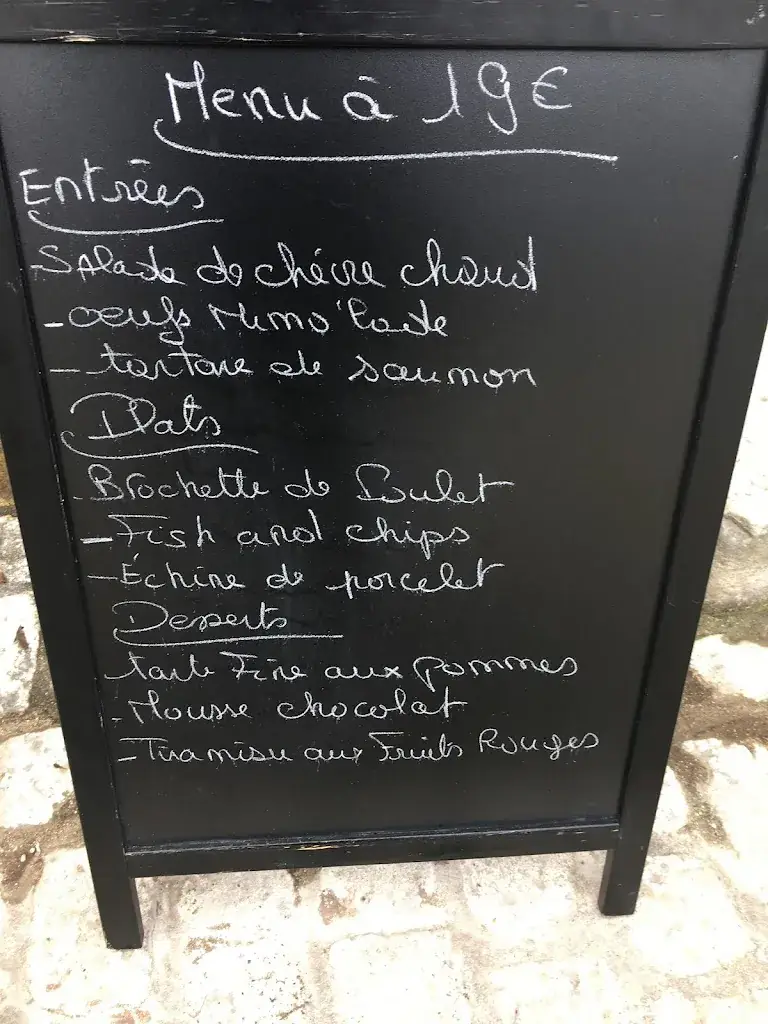 Menu à 19€
Entrées
Salade de chèvre chaud
- oeufs Mimo'lade
- tartare de saumon
Plats
- Brochette de Poulet
- Fish and chips
- Échine de porcelet
Desserts
tarte Fine aux pommes
- Mousse chocolat
- Tiramisu aux Fruits Rouges